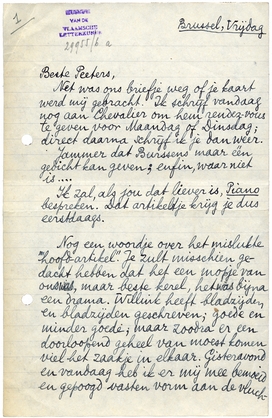 1
MUSEUM
VAN DE
VLAAMSCHE
LETTERKUNDE
29955/6.a
Brussel, Vrijdag
Beste Peeters,
Net was ons briefje weg of je kaart
werd mij gebracht. Ik schrijf vandaag
nog aan Chevalier om hem rendez-vous
te geven voor Maandag of Dinsdag;
direct daarna schrijf ik je dan weer.
Jammer dat Burssens maar één
gedicht kan geven; enfin, waar niet
is....
Ik zal, als jou dat liever is, Piano
bespreken. Dat artikeltje krijg je dus
eerstdaags.
Nog een woordje over het mislukte
"hoofd-artikel". Je zult misschien ge-
dacht hebben dat het een mofje van
ons was, maar beste kerel, het was bijna
een drama. Willink heeft bladzijden
en bladzijden geschreven; goede en
minder goede; maar zoodra er een
doorloopend geheel van moest komen
viel het zaakje in elkaar. Gisteravond
en vandaag heb ik er mij mee bemoeid
en gepoogd vasten vorm aan de